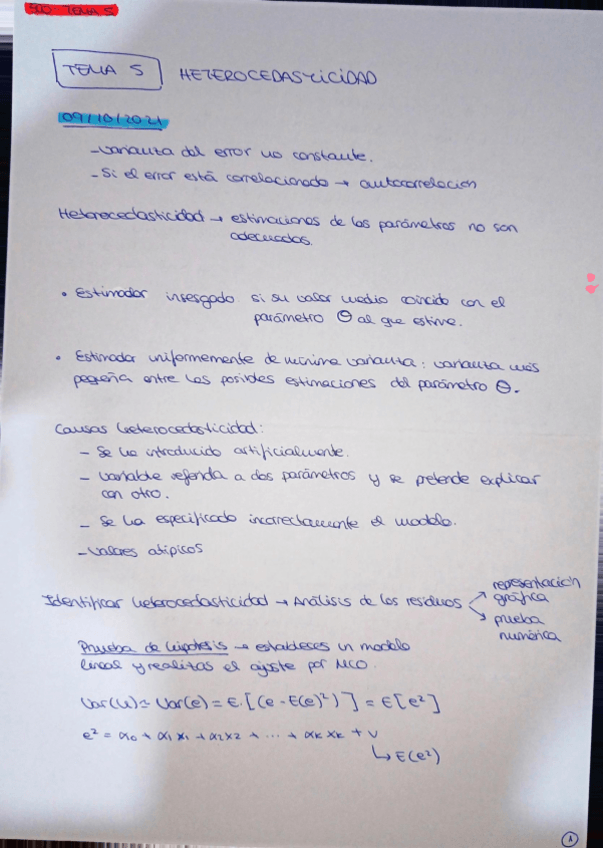 TEMA 5
TEMA 5 HETEROCEDASTICIDAD
09/10/2021
- Varianza del error no constante.
- Si el error está correlacionado → autocorrelación
Heterocedasticidad → estimaciones de los parámetros no son
adecuados.
• Estimador insesgado si su valor medio coincide con el
parámetro Θ al que estime.
• Estimador uniformemente de mínima varianza: varianza más
pequeña entre las posibles estimaciones del parámetro Θ.
Causas heterocedasticidad:
- Se ha introducido artificialmente.
- Variable referida a dos parámetros y se pretende explicar
con otro.
- Se ha especificado incorrectamente el modelo.
- Valores atípicos
representación
Identificar heterocedasticidad → Análisis de los residuos gráfica
prueba
numérica
Prueba de hipótesis → estableces un modelo
lineal y realizas el ajuste por MCO.
Var(u) ≃ Var(e) = E[(e - E(e)²)] = E[e²]
e² = α0 + α1x1 + α2x2 + ... + αkxk + v
↳ E(e²)